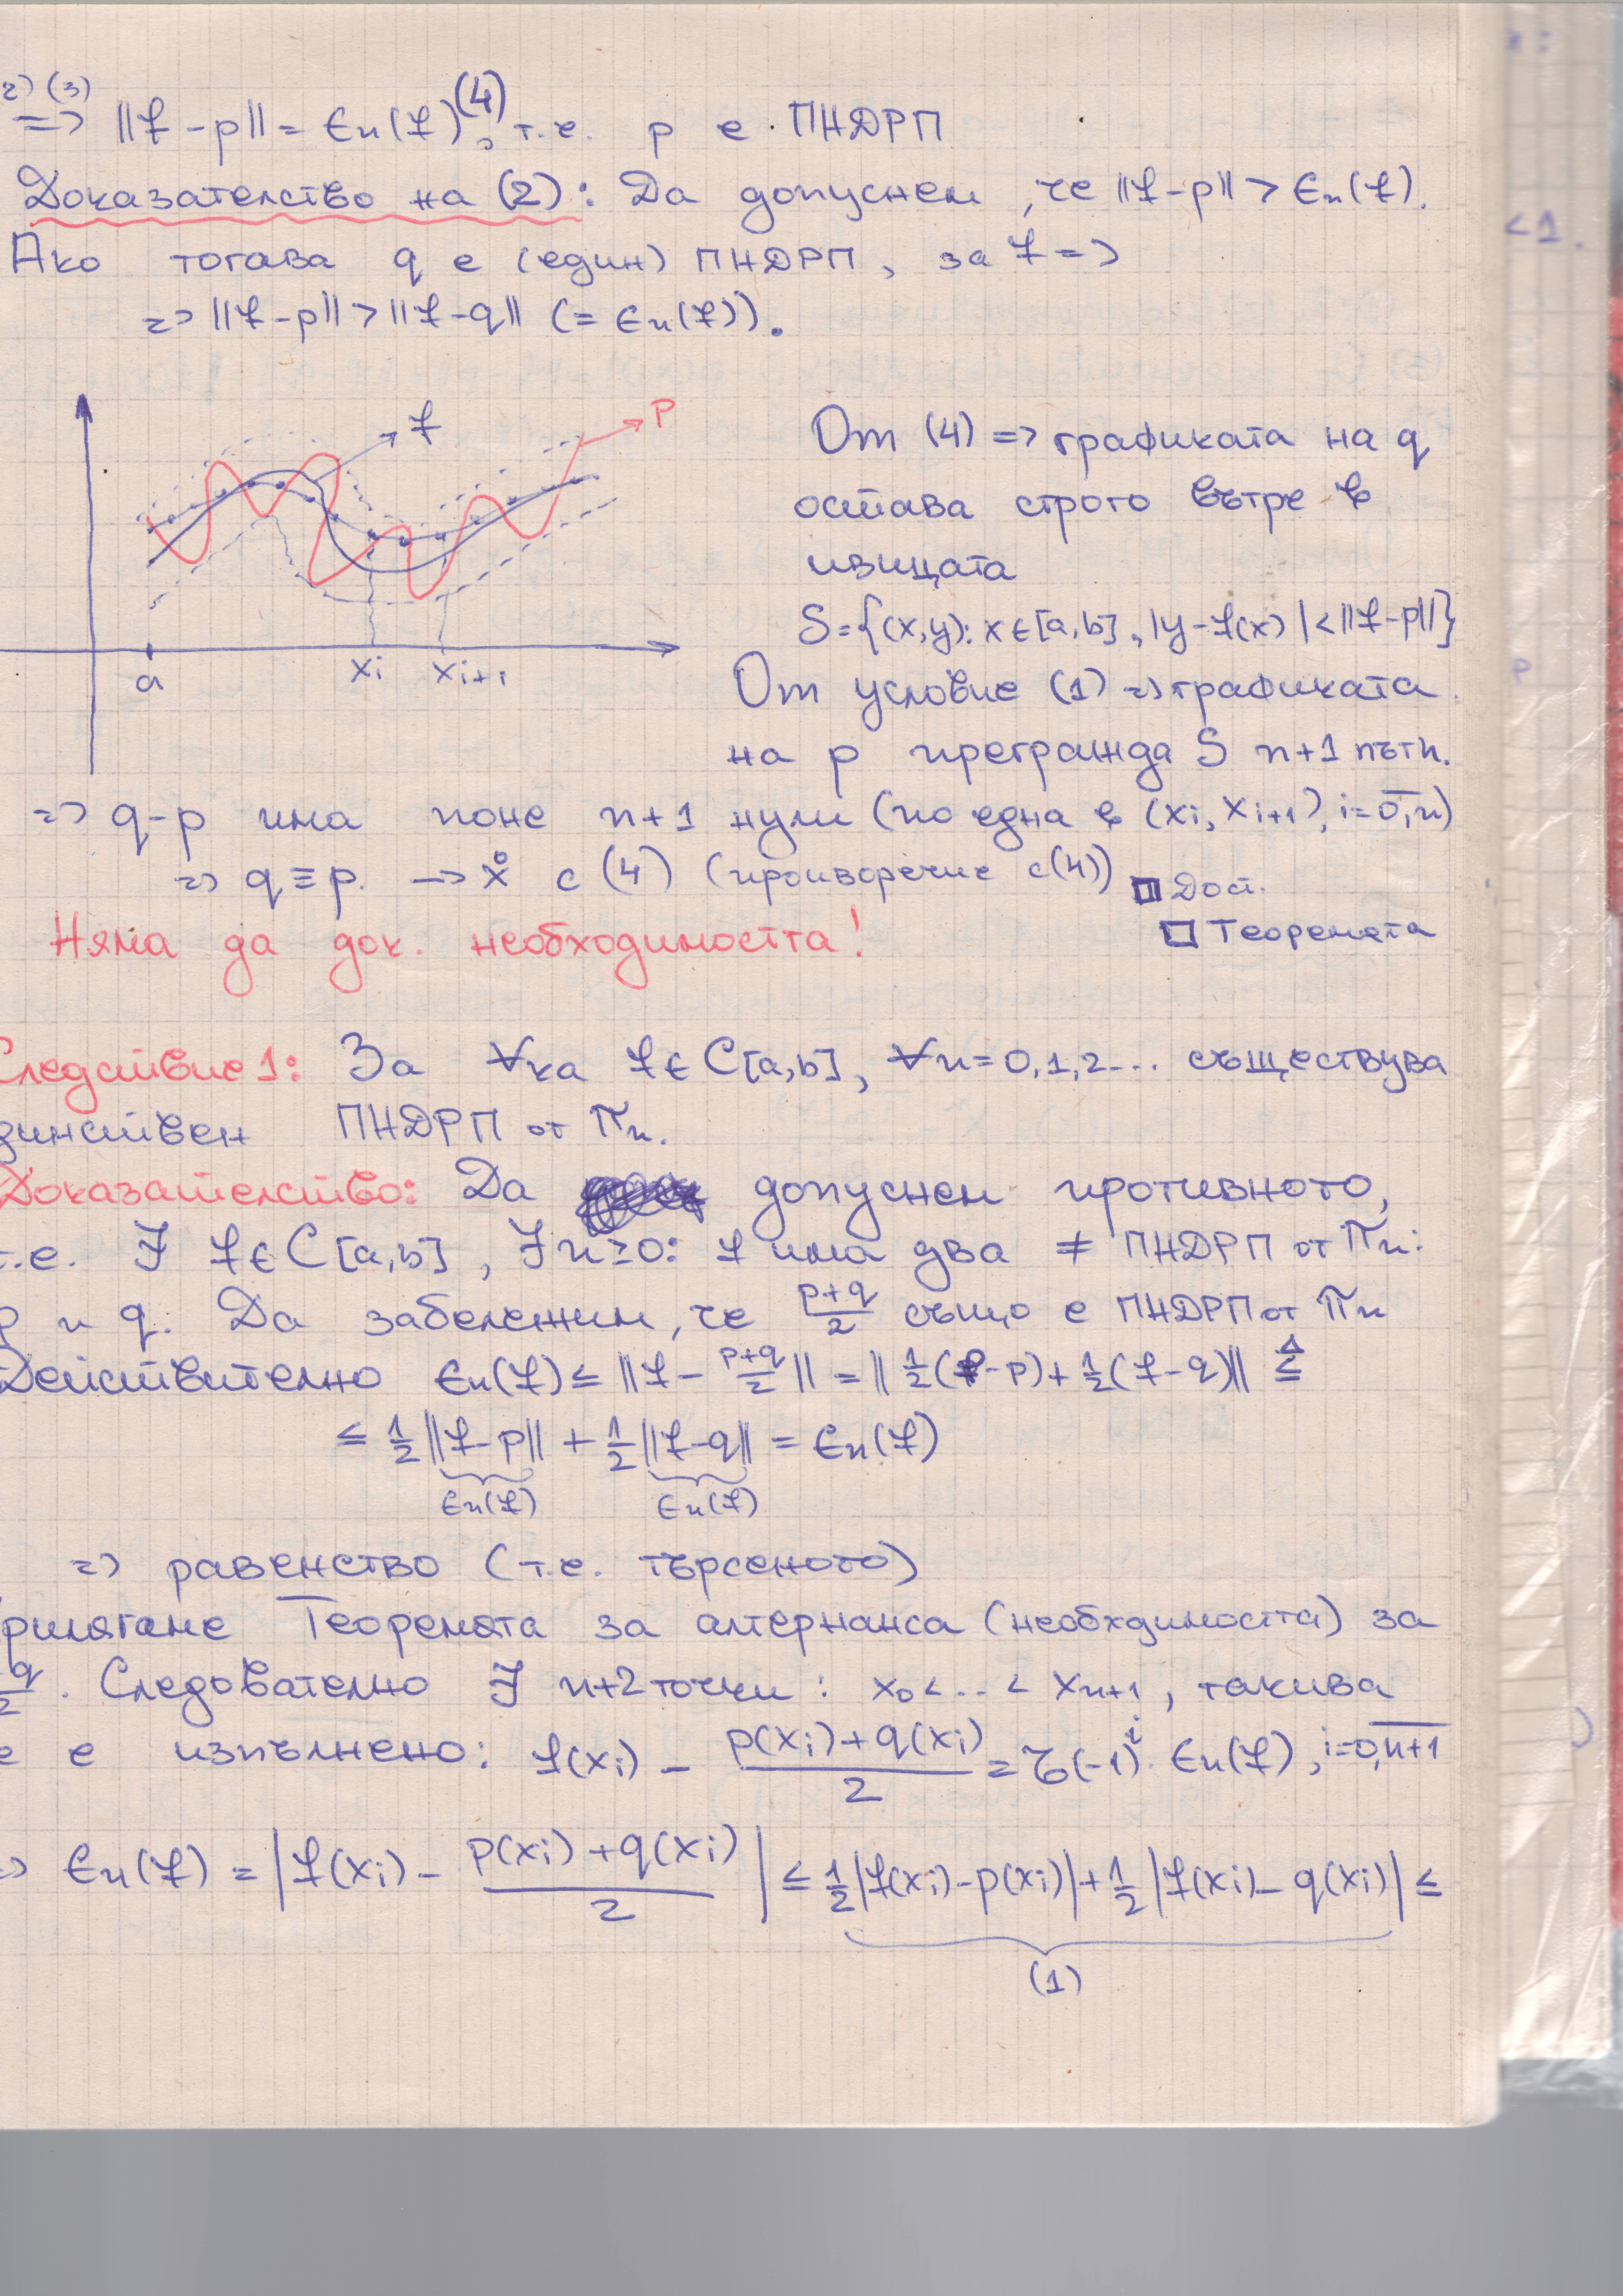 2) (3)
=> ||f - p|| = En(f) (4), т.е. p е ПНДРП
Доказателство на (2): Да допуснем, че ||f-p|| > En(f).
Ако тогава q е (един) ПНДРП, за f =>
=> ||f-p|| > ||f-q|| (= En(f)).
f
p
a xi xi+1
От (4) => графиката на q
остава строго вътре в
ивицата
S={(x,y): x∈[a,b], |y-f(x)|<||f-p||}
От условие (1) => графиката
на p прегражда S n+1 пъти.
=> q-p има поне n+1 нули (по една в (xi, xi+1), i=0,n)
=> q≡p. -> х с (4) (противоречие с(4)) Дост.
Теоремата
Няма да док. необходимостта!
Следствие 1: За ∀ка f∈C[a,b], ∀n=0,1,2... съществува
динствен ПНДРП от πn.
Доказателство: Да допуснем противното,
т.е. ∃ f∈C[a,b], ∃n≥0: f има два ≠ ПНДРП от πn:
p и q. Да забележим, че (p+q)/2 също е ПНДРП от πn
Действително En(f) ≤ ||f - (p+q)/2|| = ||1/2(f-p)+1/2(f-q)|| ≤
≤ 1/2||f-p|| + 1/2||f-q|| = En(f)
En(f) En(f)
=> равенство (т.е. търсеното)
рилагаме Теоремата за алтернанса (необходимостта) за
q/2. Следователно ∃ n+2 точки: x0<...< xn+1, такива
е е изпълнено: f(xi) - (p(xi)+q(xi))/2 = σ(-1)^i. En(f), i=0,n+1
=> En(f) = |f(xi) - (p(xi)+q(xi))/2| ≤ 1/2|f(xi)-p(xi)|+1/2|f(xi)-q(xi)| ≤
(1)
<1.
p